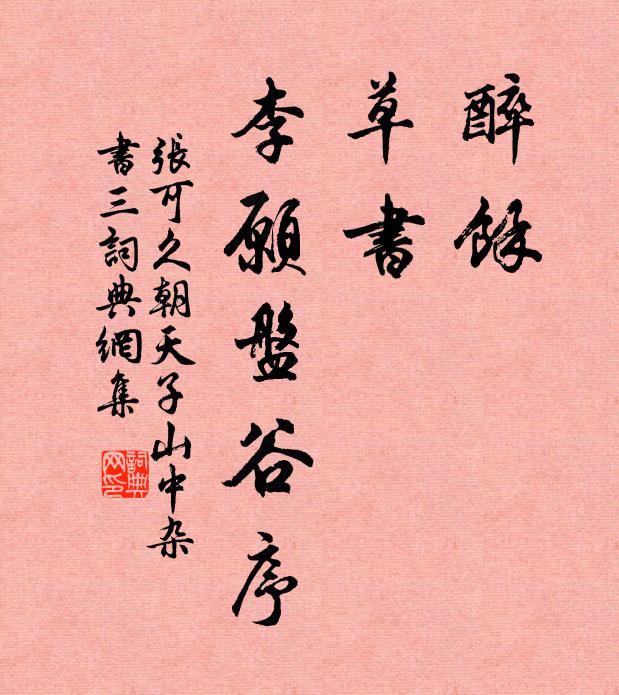 醉餘
草書
李願盤谷序
張可久朝天子山中杂
書三詞典網集
詞典网印